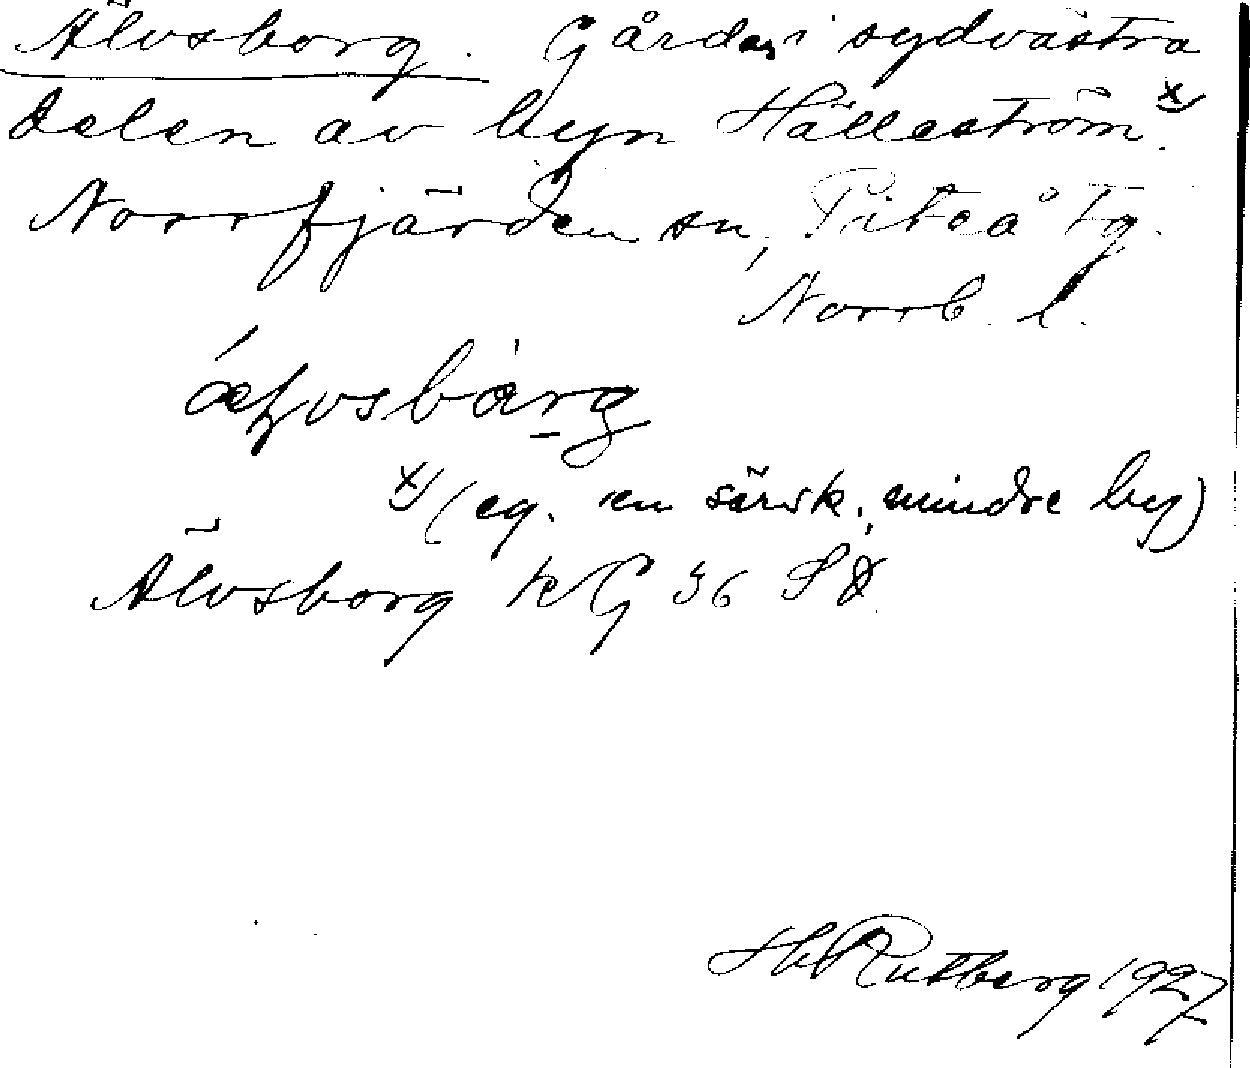 Älvsborg. Gårdar i sydvästra
delen av byn Hälleström. x)
Norrfjärden sn, Piteå tg.
Norrb. l.
x) (eg. en särsk. mindre by)
Älvsborg kG 36 SD
Hb Rutberg 1927